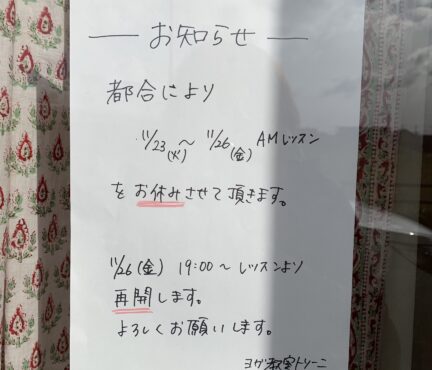 お知らせ
都合により
11/23(火)〜11/26(金) AMレッスン
をお休みさせて頂きます。
11/26(金) 19:00〜レッスンより
再開します。
よろしくお願いします。
ヨガ教室トリーニ